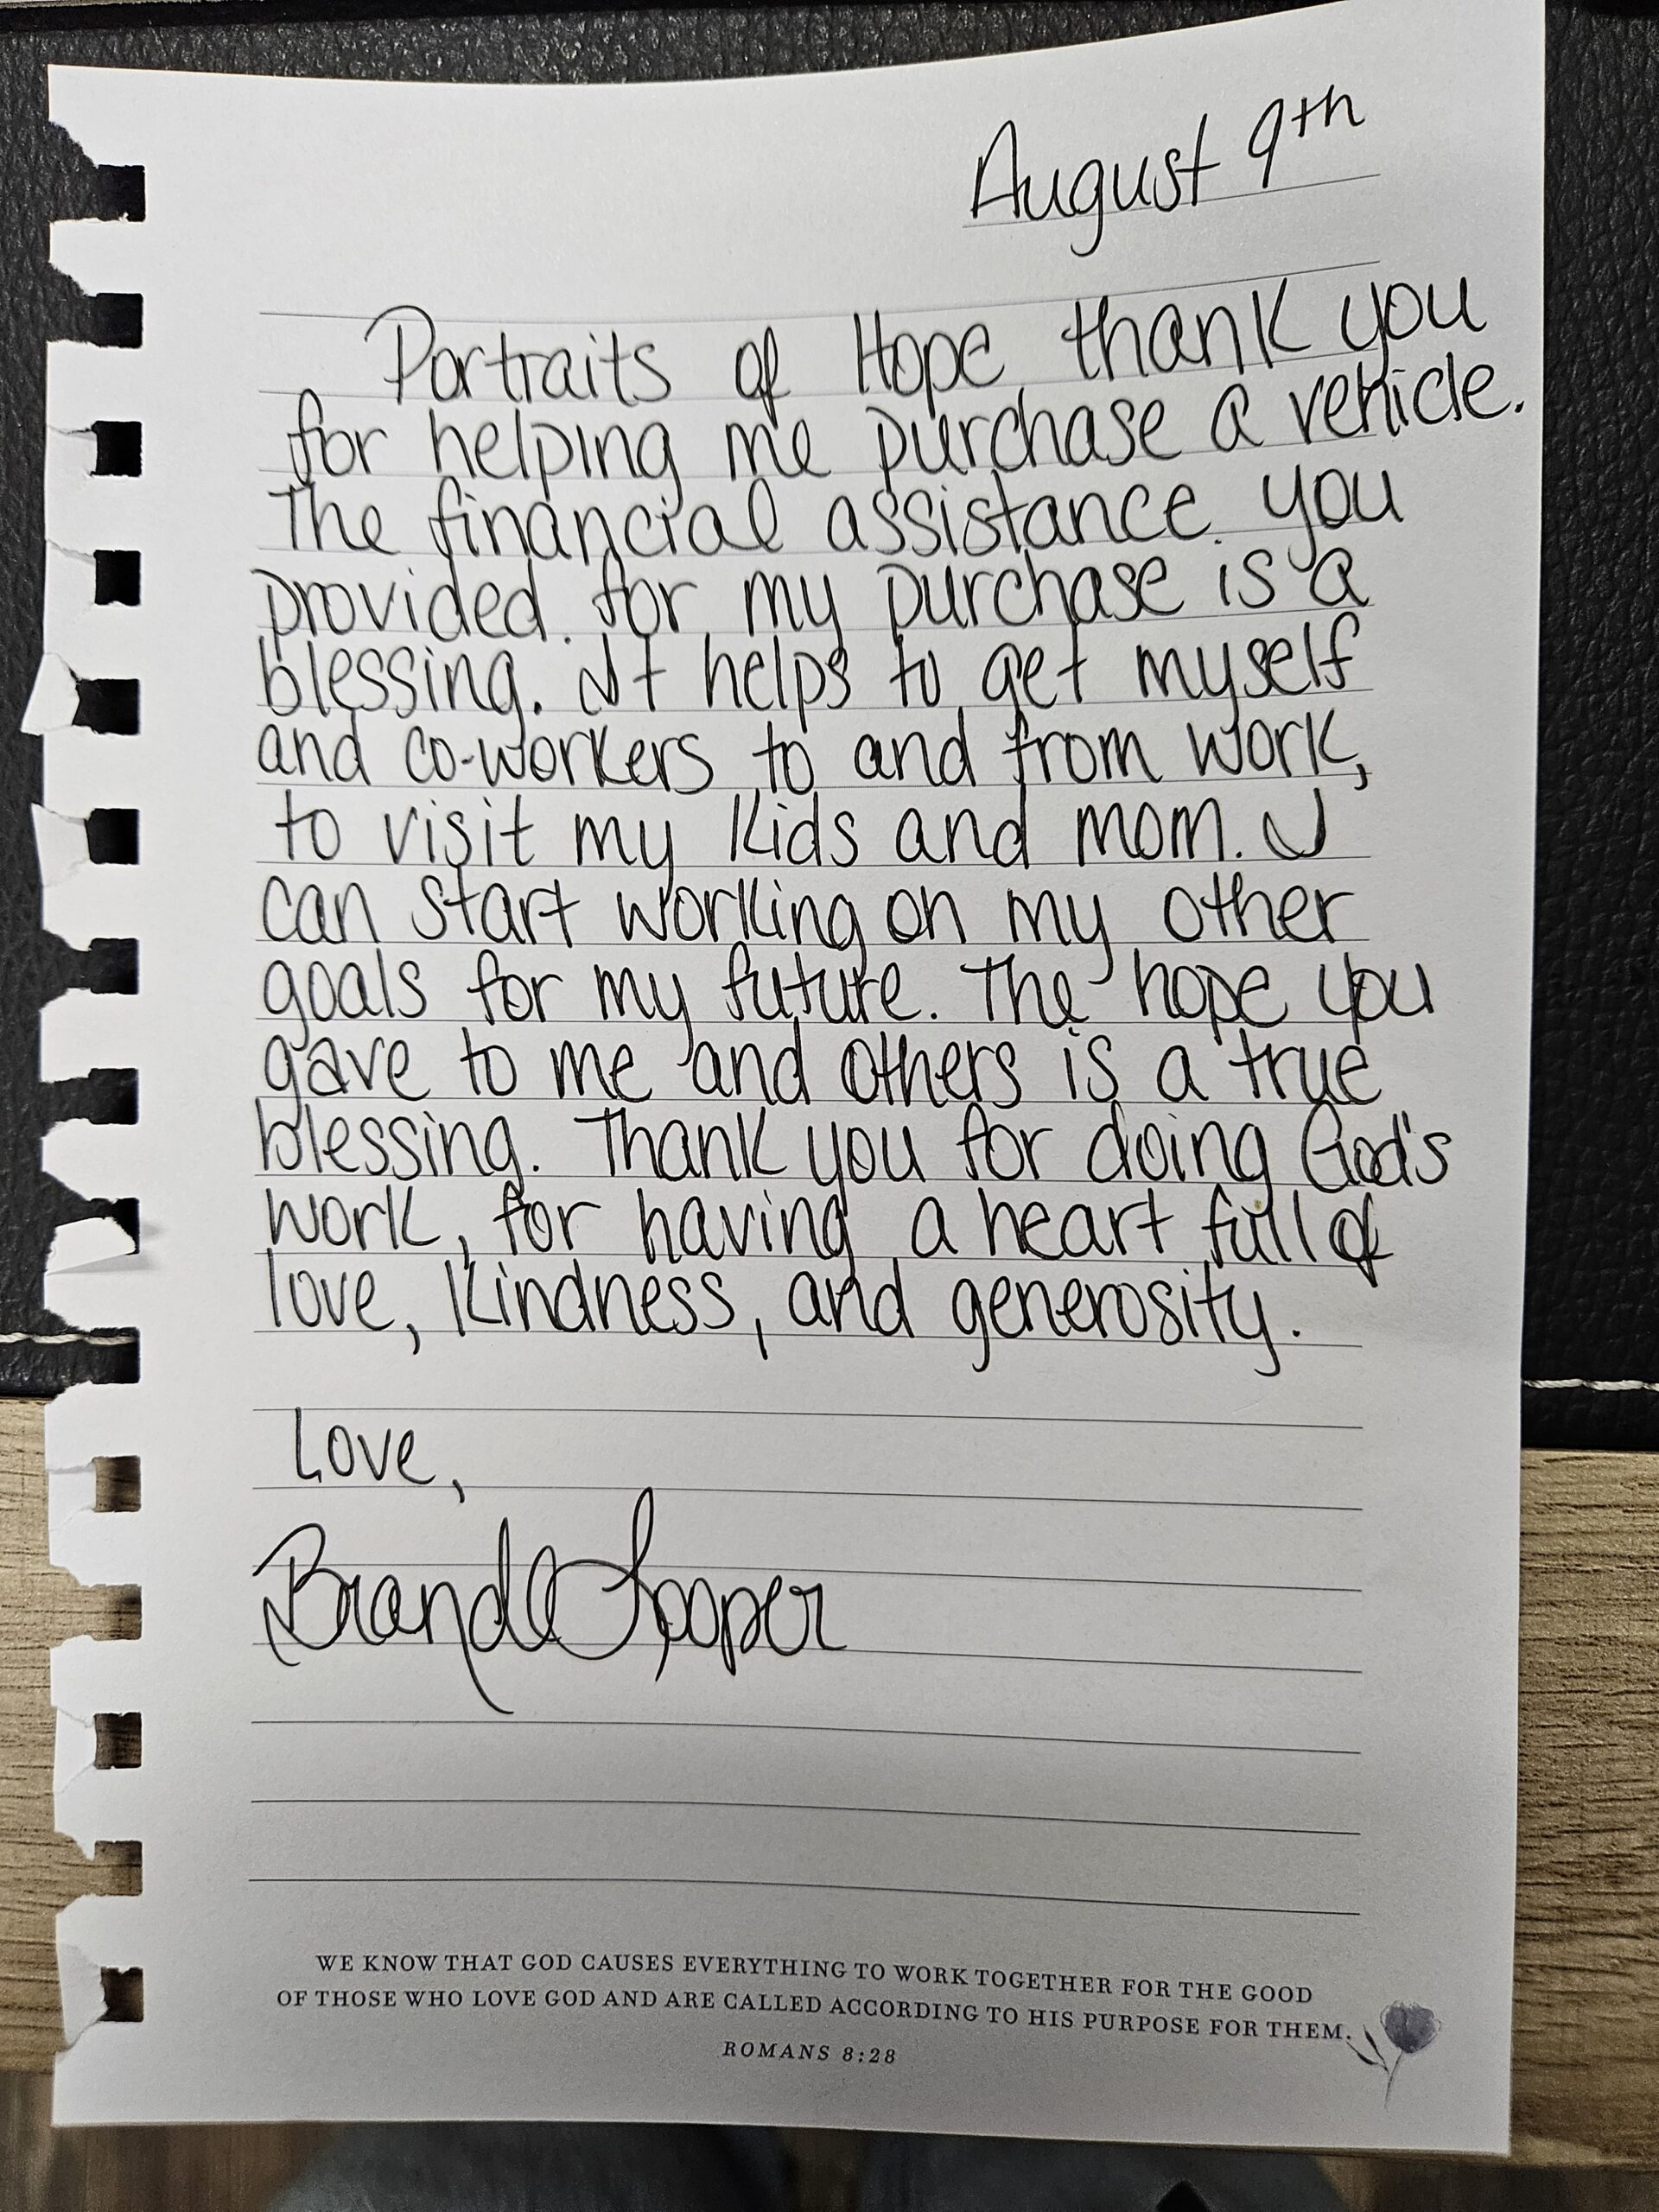 August 9th
Portraits of Hope thank you
for helping me purchase a vehicle.
The financial assistance you
provided for my purchase is a
blessing. It helps to get myself
and co-workers to and from work,
to visit my kids and mom. I
can start working on my other
goals for my future. The hope you
gave to me and others is a true
blessing. Thank you for doing God's
work, for having a heart full of
love, kindness, and generosity.
Love,
Looper
WE KNOW THAT GOD CAUSES EVERYTHING TO WORK TOGETHER FOR THE GOOD
OF THOSE WHO LOVE GOD AND ARE CALLED ACCORDING TO HIS PURPOSE FOR THEM.
ROMANS 8:28